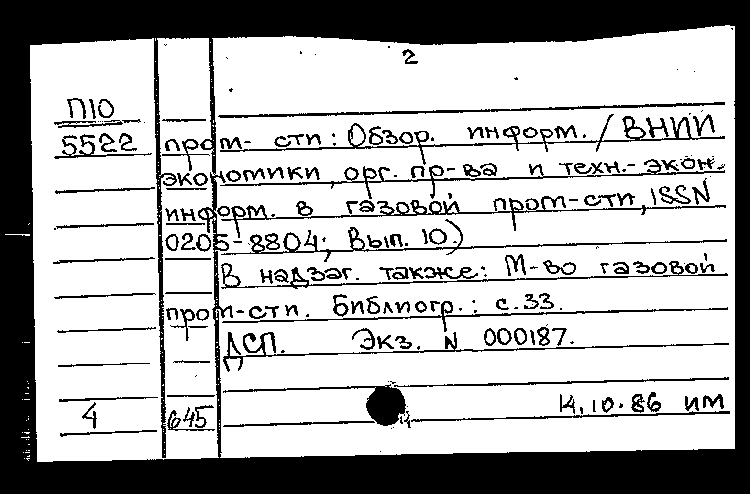 2
П10
5522 пром-сти: Обзор. информ. / ВНИИ
экономики, орг. пр-ва и техн.-экон.
информ. в газовой пром-сти, ISSN
0205-8804; Вып. 10.)
В надзаг. также: М-во газовой
пром-сти. Библиогр.: с. 33.
ДСП. Экз. N 000187.
4 645 14.10.86 им